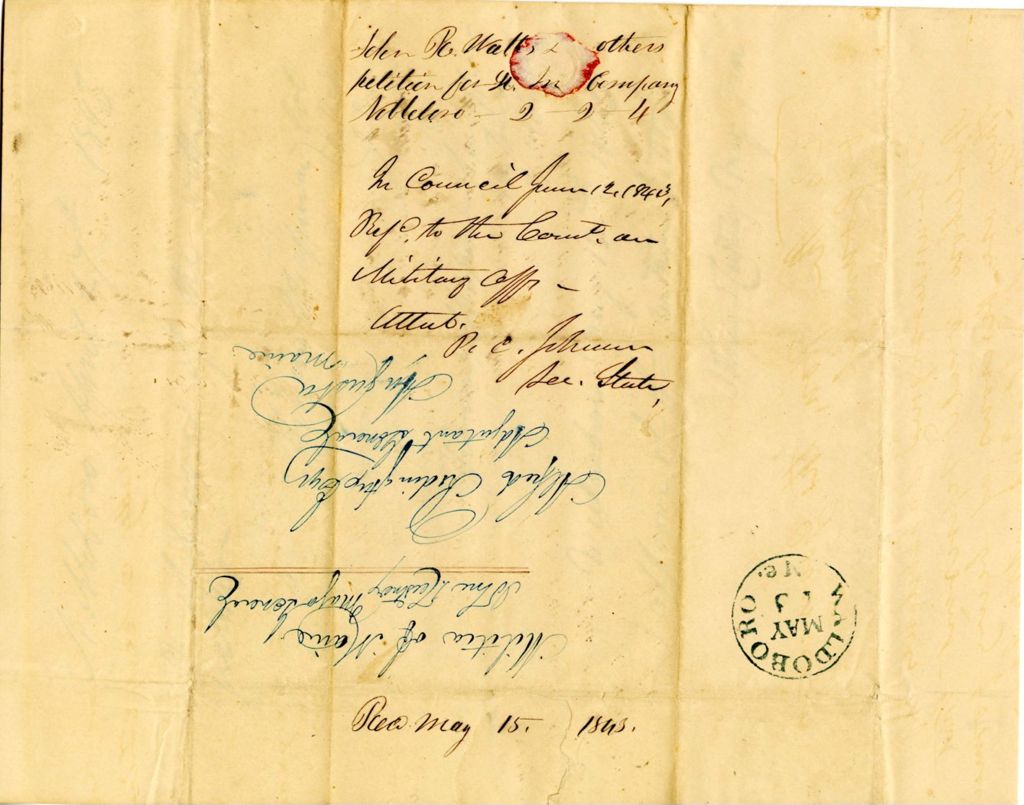 John R. Watts & others
petition for Lt. In Company
Nobleboro – 2 – 2 – 4
In Council June 12, 1843,
Refd. to the Comt. on
Military Affs –
Attest.
P. C. Johnson
Sec. State,
Militia of Maine
Major General
Alfred Redington Esqr
Adjutant General
Augusta
Maine
WALDOBORO
MAY
13
Me.
Recd. May 15. 1843.